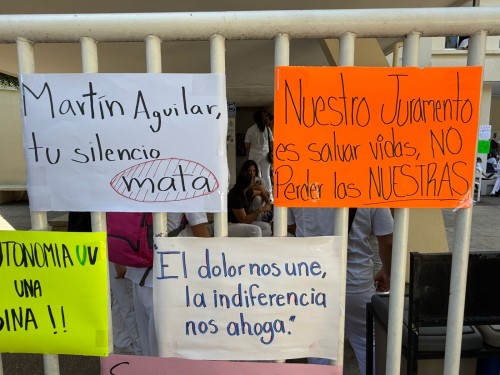 Martín Aguilar,
tu silencio
mata
Nuestro Juramento
es salvar vidas, NO
Perder las NUESTRAS
UV
UNA
!!
El dolor nos une,
la indiferencia
nos ahoga."